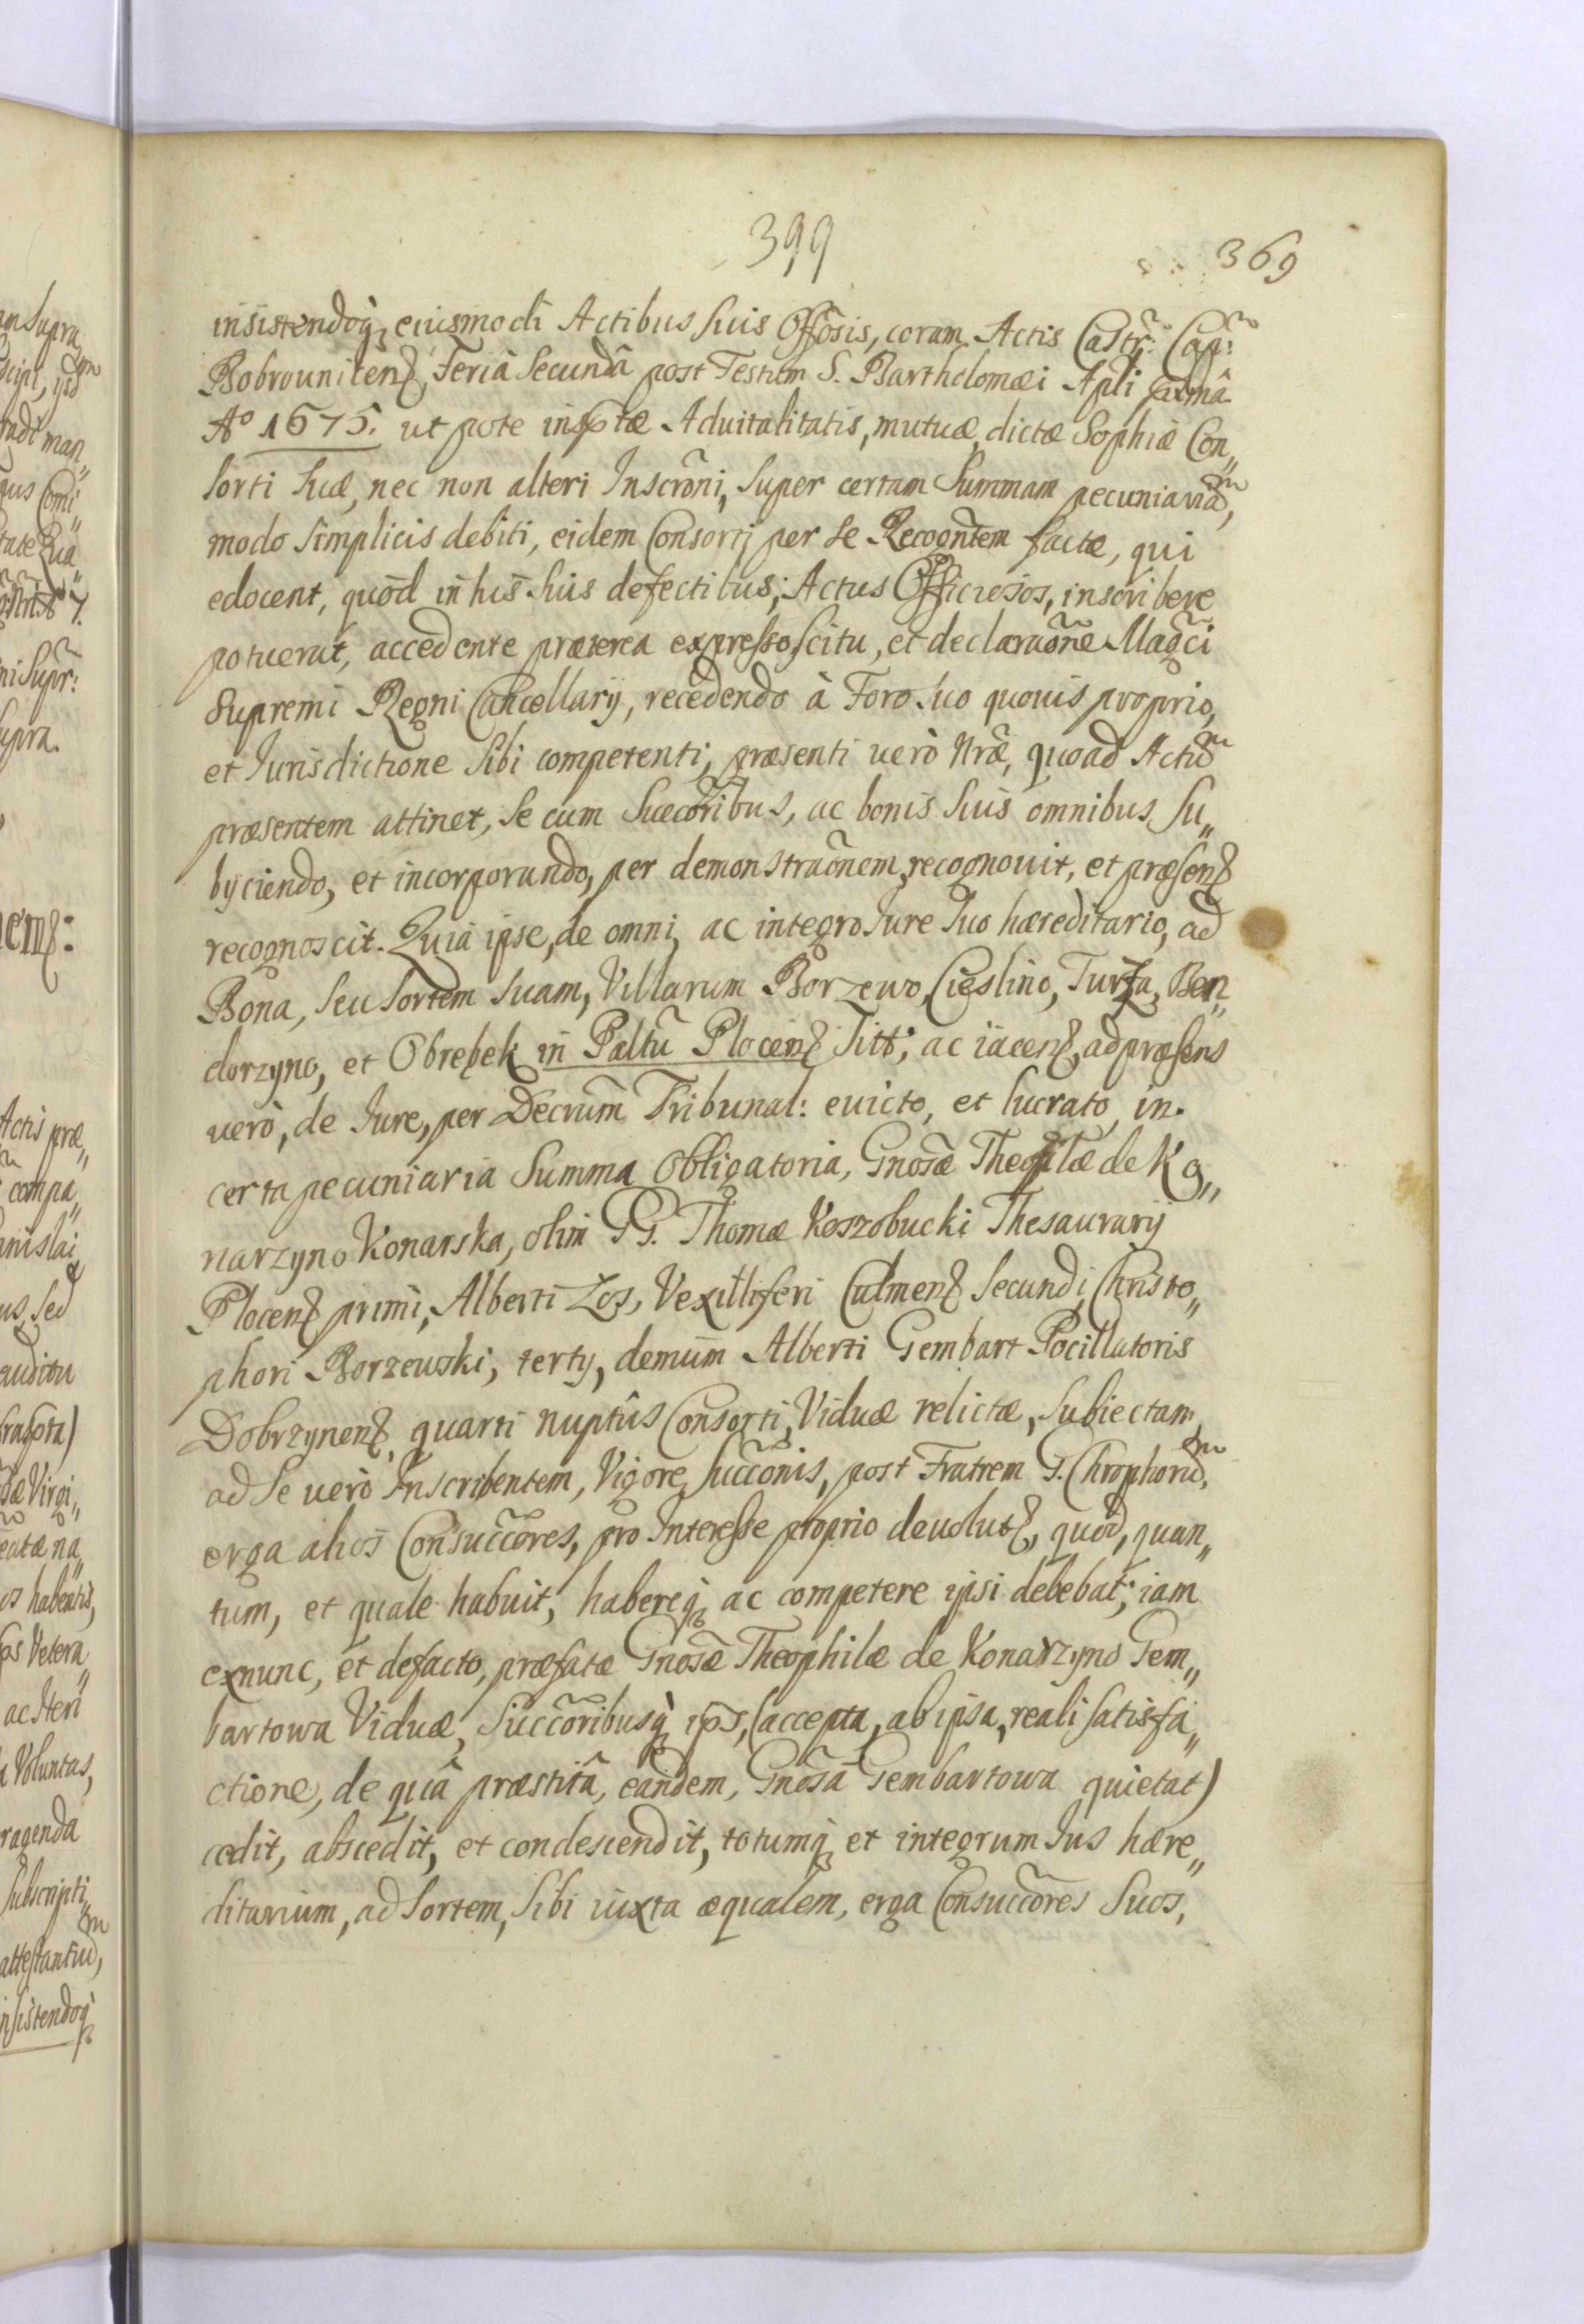 399
369
insistendoq; eiusmodi Actibus suis Offõsis, coram Actis Castr̃: Cap̃:
Bobrouniten̄, Feriâ Secundâ post Festum S. Bartholomæi Apli pxmâ
Aº 1675. ut pote insptæ Aduitalitatis, mutuæ, dictæ Sophiæ Con„
sorti suæ, nec non alteri Inscrõni, super certam Summam pecuniariã,
modo simplicis debiti, eidem Consorti per se Recogntem factæ, qui
edocent, quõd in his suis defectibus, Actus Officiosos, inscribere
potuerut, accedente præterea expresso scitu, et declaraõne Magci
Supremi Regni Cancellarij, recedendo à Foro suo quouis proprio,
et Jurisdictione sibi competenti, præsenti uerò Nræ, quoad Actũ
præsentem attinet, se cum Succõribus, ac bonis suis omnibus su„
byciendo, et incorporando, per demonstraõnem, recognouit, et præsen̄
recognoscit. Quia ipse, de omni, ac integro Jure suo hæreditario, ad
Bona, seu sortem suam, Villarum Borzewo, Cieslino, Turza, Ben„
dorzyno, et Obrębek in Paltũ Plocen̄ sitt; ac iacen̄, ad præsens
uerò, de Jure, per Decrũm Tribunal: euicto, et lucrato, in.
certa pecuniaria Summa Obligatoria, Gnosæ Theophilæ de Ko„
narzyno Konarska, olim GG. Thomæ Koszobucki Thesaurarij
Plocen̄ primi, Alberti Los, Vexilliferi Culmen̄ secundi, Christo„
phori Borzewski, tertÿ, demum Alberti Gembart Pocillatoris
Dobrzynen̄, quarti nuptûs Consorti, Viduæ relictæ, subiectam,
ad se uerò Inscribentem, Vigore Succõnis, post Fratrem G. Chrophorũ,
erga alios Consuccõres, pro Interesse proprio deuolut̄, quod, quan„
tum, et quale habuit, habereq; ac competere ipsi debebat; iam
exnunc, et defacto, præfatæ Gnosæ Theophilæ de Konarzyno Gem„
bartowa Viduæ, Succõribusq; ips, (accepta, ab ipsa, reali satisfa„
ctione, de quâ præstitâ, eandem, Gnosã Gembartowa quietat)
cedit, abscedit, et condescendit, totumq; et integrum Jus hære„
ditarium, ad sortem, sibi iuxta æqualem, erga Consuccõres suos,